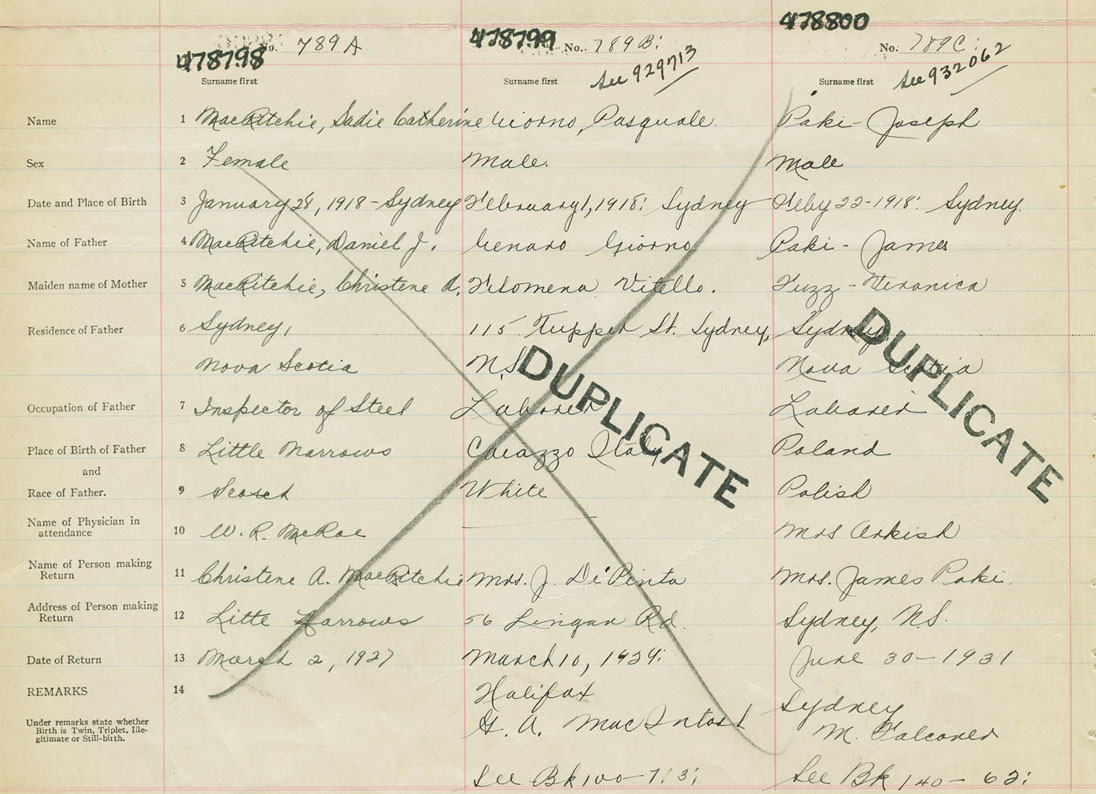 478798 478799 478800
No. 789A No. 789B: No. 789C:
See 929713 See 932062
Surname first Surname first Surname first
Name 1 MacRitchie, Sadie Catherine Giorno, Pasquale Paki - Joseph
Sex 2 Female Male. Male
Date and Place of Birth 3 January 28, 1918 - Sydney February 1, 1918: Sydney Feby 22 - 1918: Sydney.
Name of Father 4 MacRitchie, Daniel J. Genaro Giorno Paki - James
Maiden name of Mother 5 MacRitchie, Christene A. Filomena Vitello. Fuzz - Veronica
Residence of Father 6 Sydney, 115 Tupper St. Sydney, Sydney
Nova Scotia N.S. Nova Scotia
Occupation of Father 7 Inspector of Steel Laborer Laborer
DUPLICATE DUPLICATE
Place of Birth of Father 8 Little Narrows Caiazzo Italy Poland
and
Race of Father. 9 Scotch White Polish
Name of Physician in
attendance 10 W. R. McRae Mrs Arkish
Name of Person making
Return 11 Christene A. MacRitchie Mrs. J. DiPinta Mrs. James Paki.
Address of Person making
Return 12 Litte Narrows 56 Lingan Rd. Sydney, N.S.
Date of Return 13 March 2, 1927 March 10, 1929: June 30 - 1931
REMARKS 14 Halifax Sydney
Under remarks state whether
Birth is Twin, Triplet, Ille-
gitimate or Still-birth.
G. A. MacIntosh M. Falconer
See Bk 100 - 713; See Bk 140 - 62: